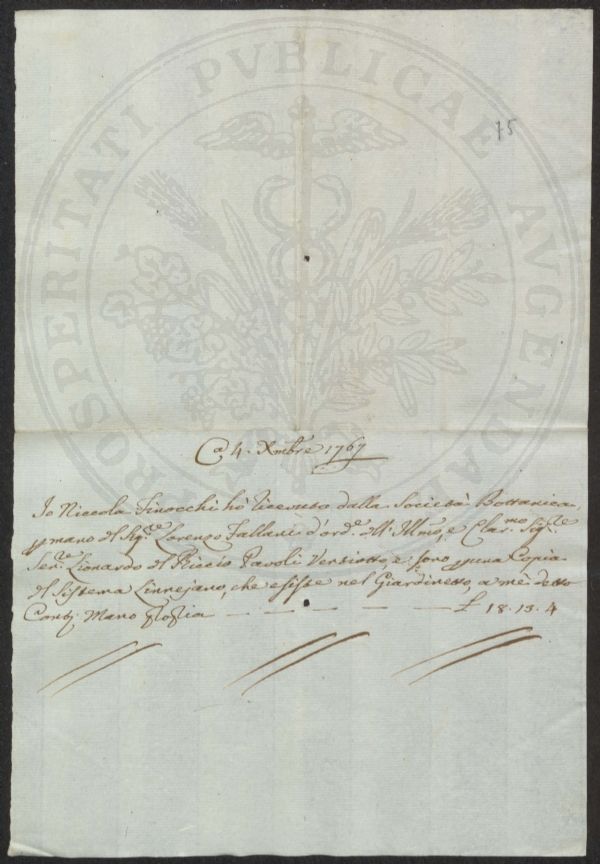 PROSPERITATI PVBLICAE AVGENDAE
75
Ca 4. Xmbre 1767
Io Niccola Finocchi hò ricevuto dalla Società Bottanica,
mano del Sig.re Lorenzo Fallani d'ord.e dell' Ill.mo, e Clar.mo Sig.re
Sen.re Lionardo del Riccio Pavoli Ventotto, e sono una Copia
del Sistema Linnejano, che esiste nel Giardinetto, a mè detto
Cont.i Mano propria — — — — — £ 18.13.4